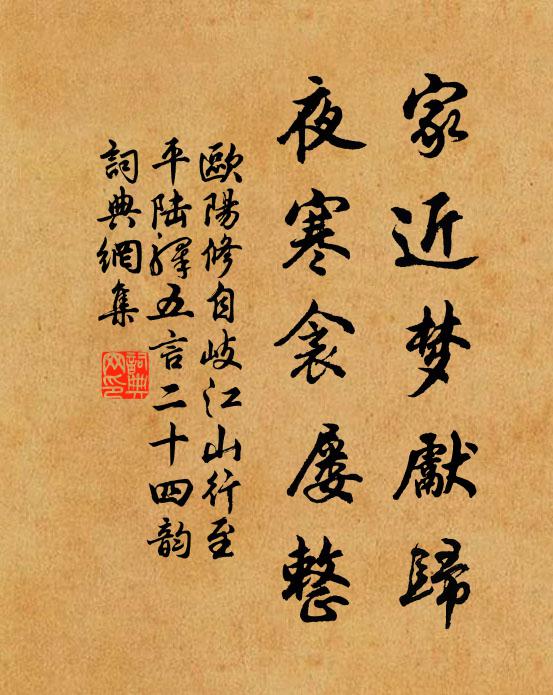 家近梦獻歸
夜寒衾屡整
歐陽修自岐江山行至
平陆驛五言二十四韵
詞典網集
詞典网印